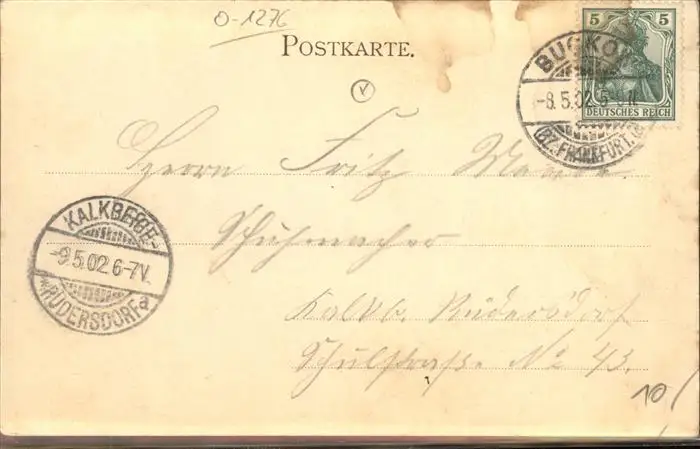 O-1276
POSTKARTE.
5 5
DEUTSCHES REICH
BUCKOW
-8.5.02.5-6N.
(BZ. FRANKFURT.
Herrn Fritz
Schuhmacher
KALKBERGE-
-9.5.02.6-7V.
*RÜDERSDORF a
Kalkb. Rüdersdorf
Schulstraße. No 43.
10